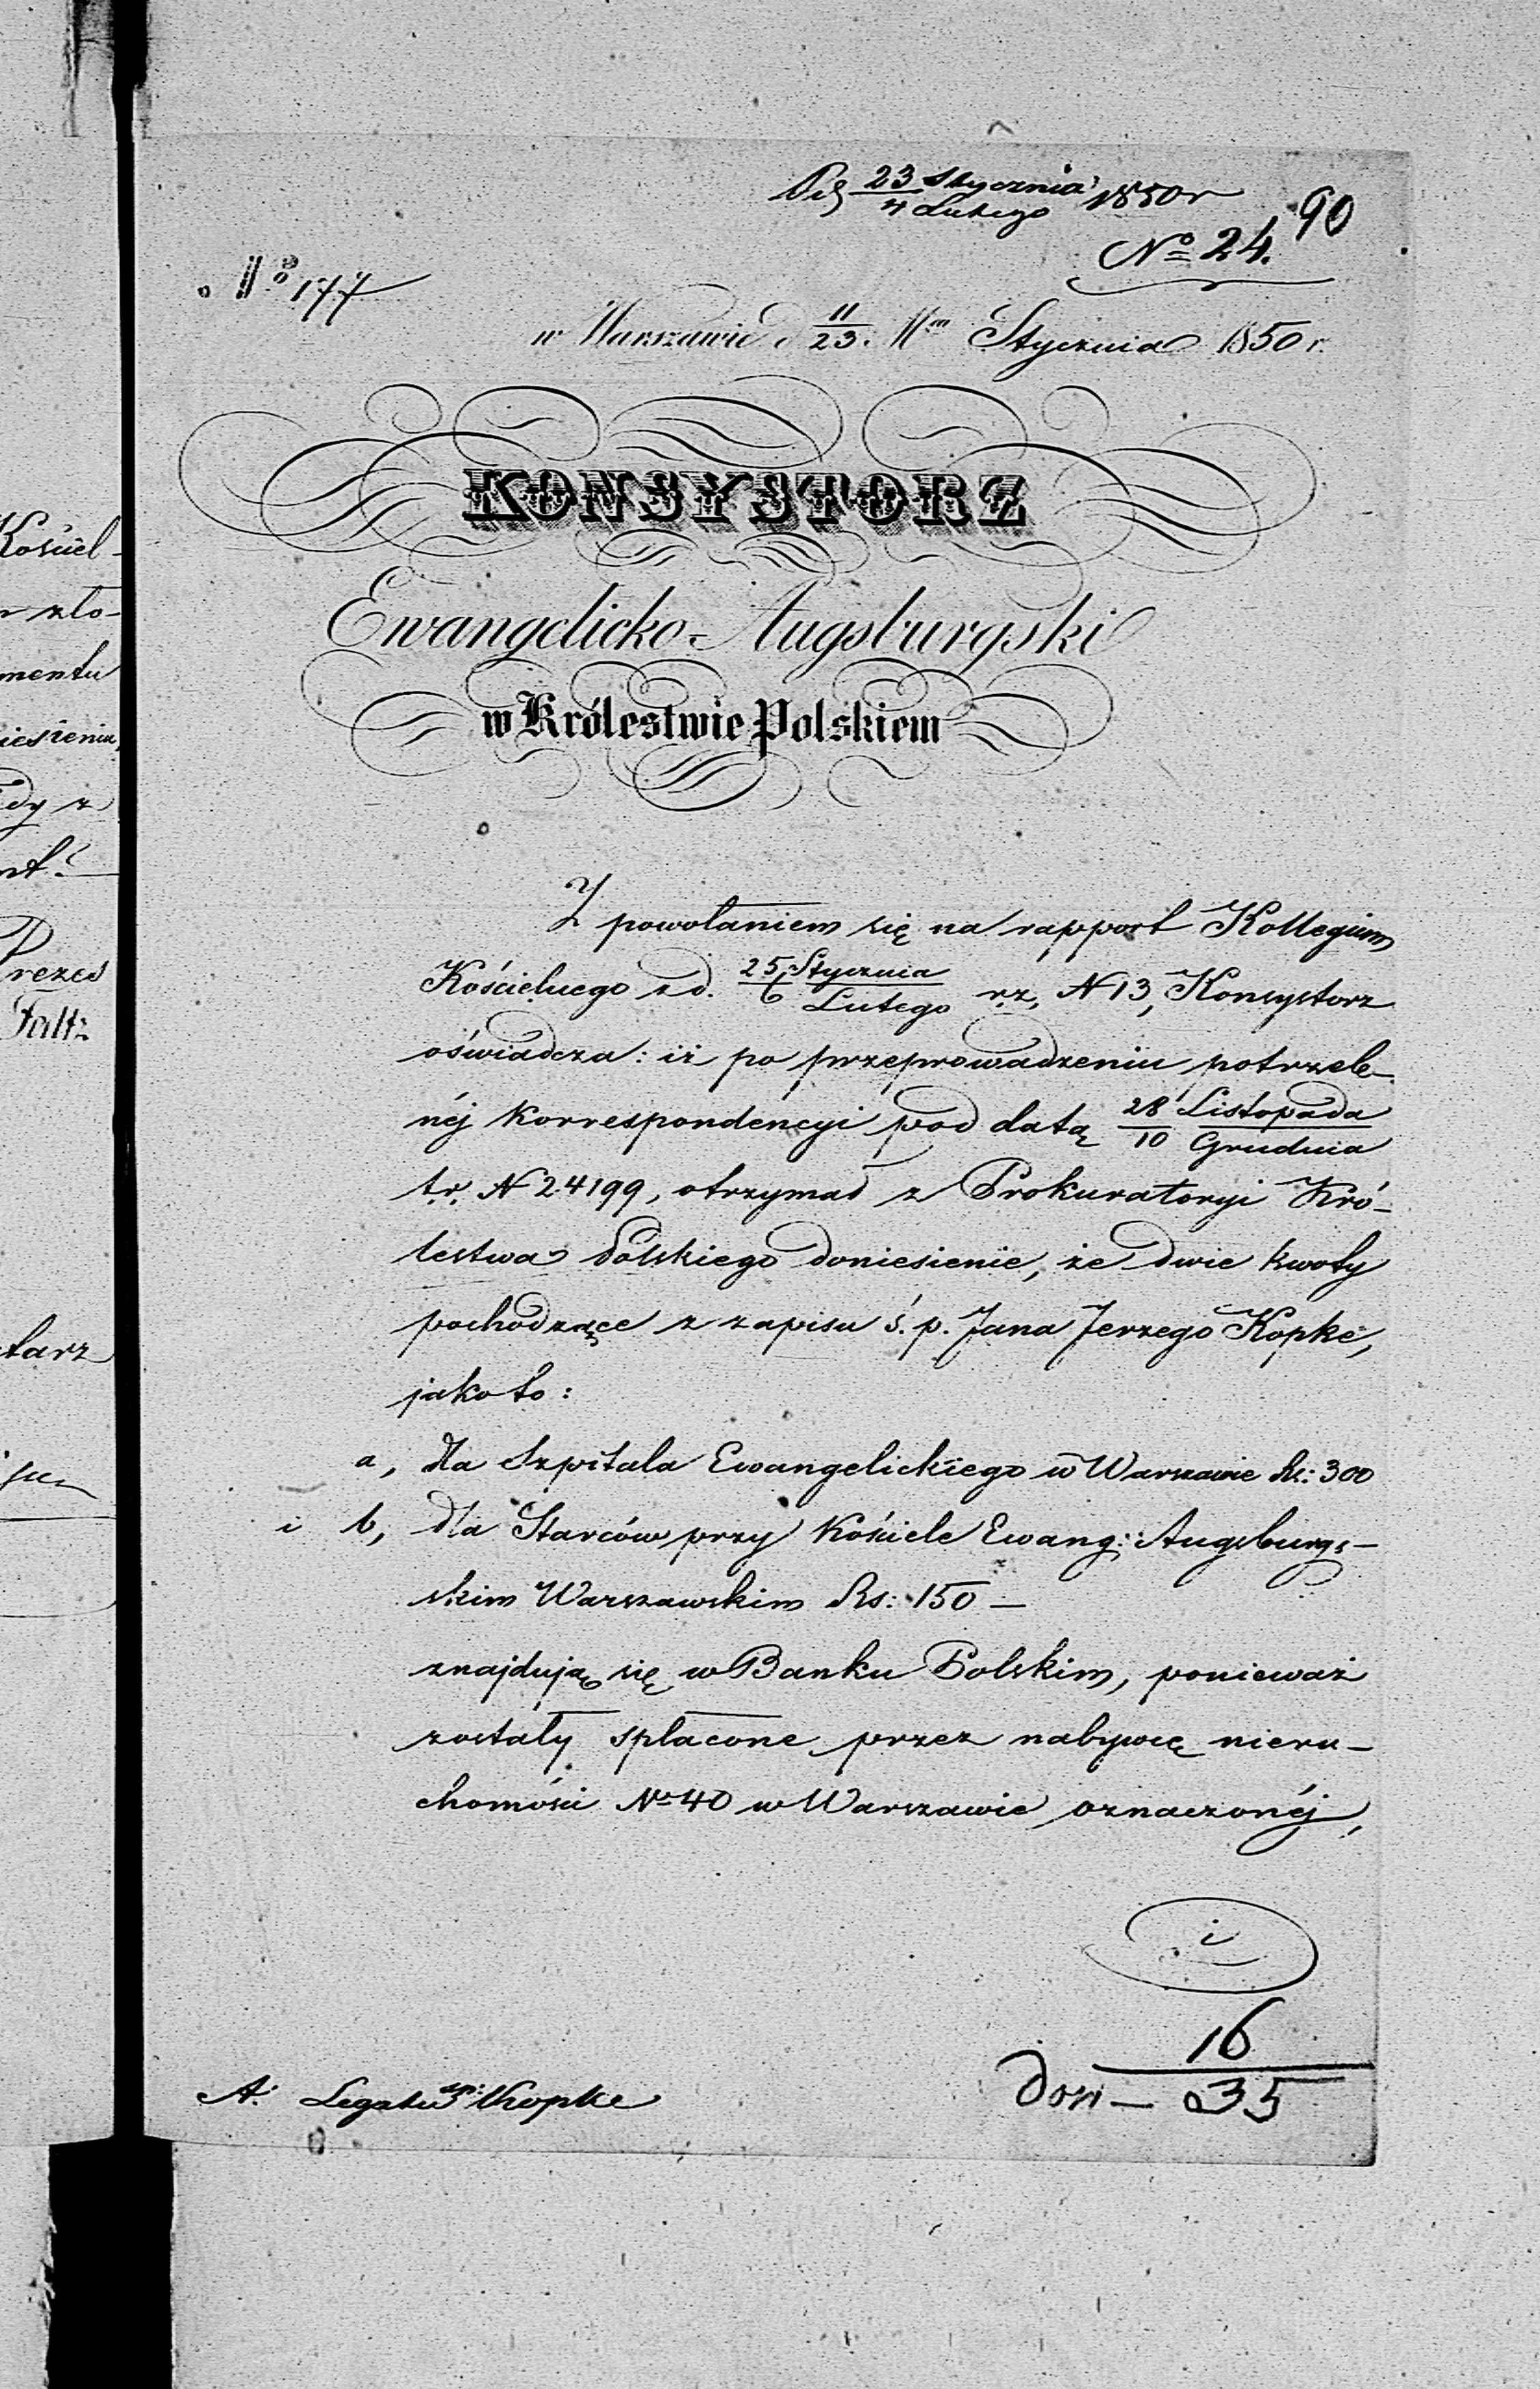 23 Stycznia
4 Lutego 1850 r
90
No 24.
No 177
w Warszawie d 11/23. Mca Stycznia 1850 r.
KONSYSTORZ
Ewangelicko-Augsburgski
w Królestwie Polskiem
Z powołaniem się na rapport Kollegium
Kościelnego z d. 25 Stycznia / 6 Lutego r.z. N 13, Konsystorz
oświadcza: iż po przeprowadzeniu potrzeb-
néj korrespondencyi pod datą 28 Listopada / 10 Grudnia
t.r. N 24199, otrzymał z Prokuratoryi Kró-
lestwa Polskiego doniesienie, że dwie kwoty
pochodzące z zapisu ś. p. Jana Jerzego Kopke,
jako to:
a, dla Szpitala Ewangelickiego w Warszawie Rs: 300
i b, dla Starców przy Kościele Ewang: Augsburgs-
skim Warszawskim Rs: 150 —
znajdują się w Banku Polskim, ponieważ
zostały spłacone przez nabywcę nieru-
chomości No 40 w Warszawie oznaczonéj,
i
16
35
A. Legatu śp: Kopke
Kościel-
zło-
mentu
iesienia,
dy z
Prezes
Faltz
tarz